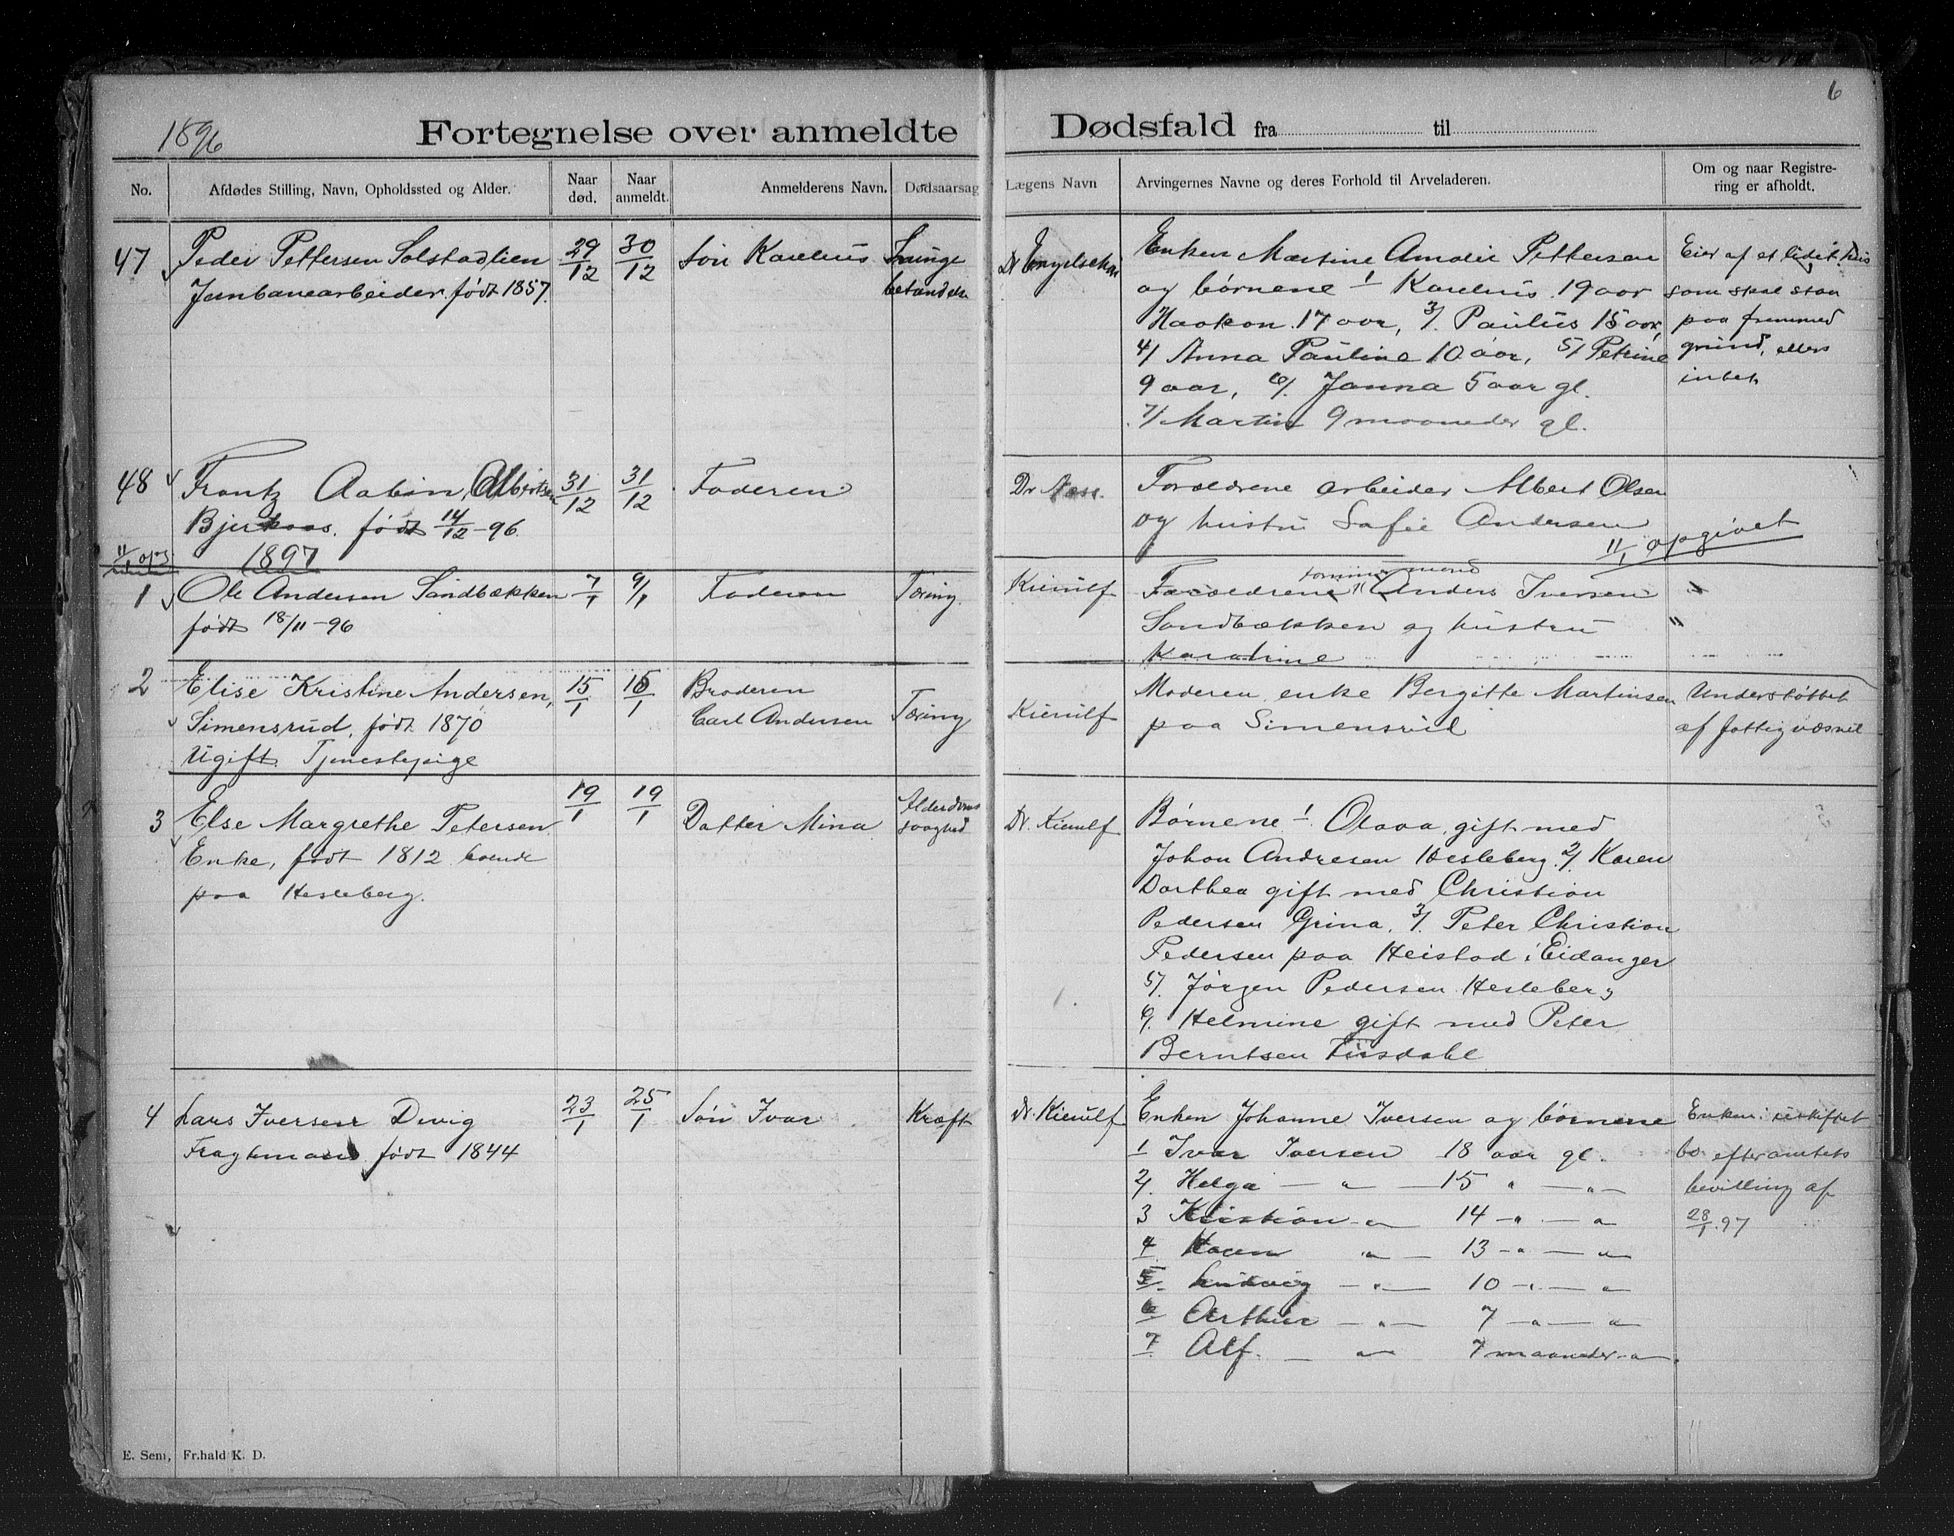 6
1896
Fortegnelse over anmeldte Dødsfald fra til
No. Afdødes Stilling, Navn, Opholdssted og Alder. Naar død. Naar anmeldt. Anmelderens Navn. Dødsaarsag Lægens Navn Arvingernes Navne og deres Forhold til Arveladeren. Om og naar Registrering er afholdt.
47 Peder Pettersen Solstadlien 29/12 30/12 Søn Karelius Lunge
Jernbanearbeider født 1857. betændelse
Dr Engelschøn Enken Martine Amalie Pettersen
og børnene 1 Karelius 19 aar
Haakon 17 aar, 3/ Paulus 15 aar,
4/ Anna Pauline 10 aar, 5/ Petrine
9 aar, 6/. Janna 5 aar gl.
7/ Martin 9 maaneder gl.
Eier af et lidet hus
som skal staa
paa fremmed
grund, ellers
intet
48 Frantz Aabin, Albertsen 31/12 31/12 Faderen
Bjerkaas. født 14/12-96.
Dr Næss. Forældrene arbeider Albert Olsen
og hustru Sofie Andersen
11/1 opgivet
11/1 opg.
1897
1 Ole Andersen Sandbækken 7/1 9/1 Faderen Tæring.
født 18/11-96
Kierulf Forældrene tømmermand Anders Iversen "
Sandbækken og hustru "
Karoline
2 Elise Kristine Andersen, 15/1 16/1 Broderen
Simensrud, født 1870 Carl Andersen Tæring
Ugift. Tjenestepige
Kierulf Moderen enke Bergitte Martinsen
paa Simensrud
Understøttet
af fattigvæsnet
3 Else Margrethe Petersen 19/1 19/1 Datter Mina Alderdoms
Enke, født 1812 boende svaghed
paa Hesleberg.
Dr. Kierulf Børnene 1. Olava, gift med
Johan Andresen Hesleberg. 2/ Karen
Dorthea gift med Christian
Pedersen Grina, 3/. Peter Christian
Pedersen paa Heistad i Eidanger
5/. Jørgen Pedersen Hesleberg
6. Helmine gift med Peter
Berntsen
4 Lars Iversen Devig 23/1 25/1 Søn Ivar Kræft
Fragtmand født 1844
Dr. Kierulf Enken Johanne Iversen og børnene
1 Ivar Iversen 18 aar gl.
2/. Helga — " — 15 " — " —
3 Kristian — " — 14 — " — "
4 Karen " — 13 — " — "
5. Ludvig — " — 10 — " — "
6 Arthur — " — 7 — " — "
7. Alf. — " 7 maaneder — " —.
Enken i uskiftet
bo efter amtets
bevilling af
28/1.97
E. Sem, Fr.hald K. D.